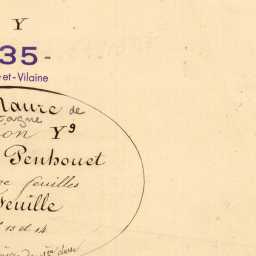 Y
35-
et-Vilaine
Maure de
tagne
ion Y9
Penhouet
feuilles
Feuille
13 et 14